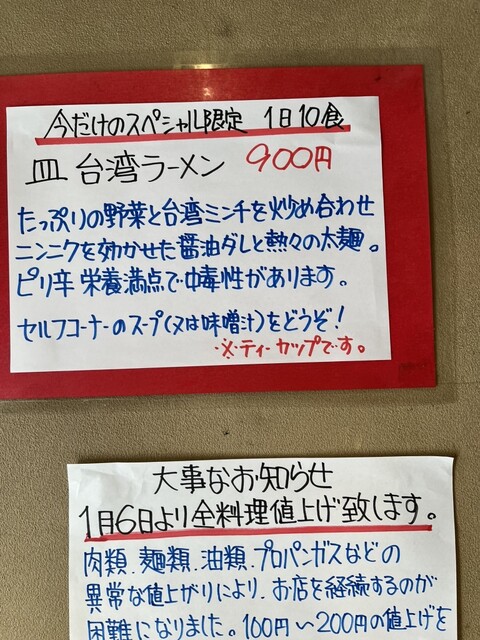 今だけのスペシャル限定 1日10食
皿 台湾ラーメン 900円
たっぷりの野菜と台湾ミンチを炒め合わせ
ニンニクを効かせた醤油ダレと熱々の太麺。
ピリ辛 栄養満点で中毒性があります。
セルフコーナーのスープ(又は味噌汁)をどうぞ!
※ティーカップです。
大事なお知らせ
1月6日より全料理値上げ致します。
肉類、麺類、油類、プロパンガスなどの
異常な値上がりにより、お店を継続するのが
困難になりました。100円〜200円の値上げを